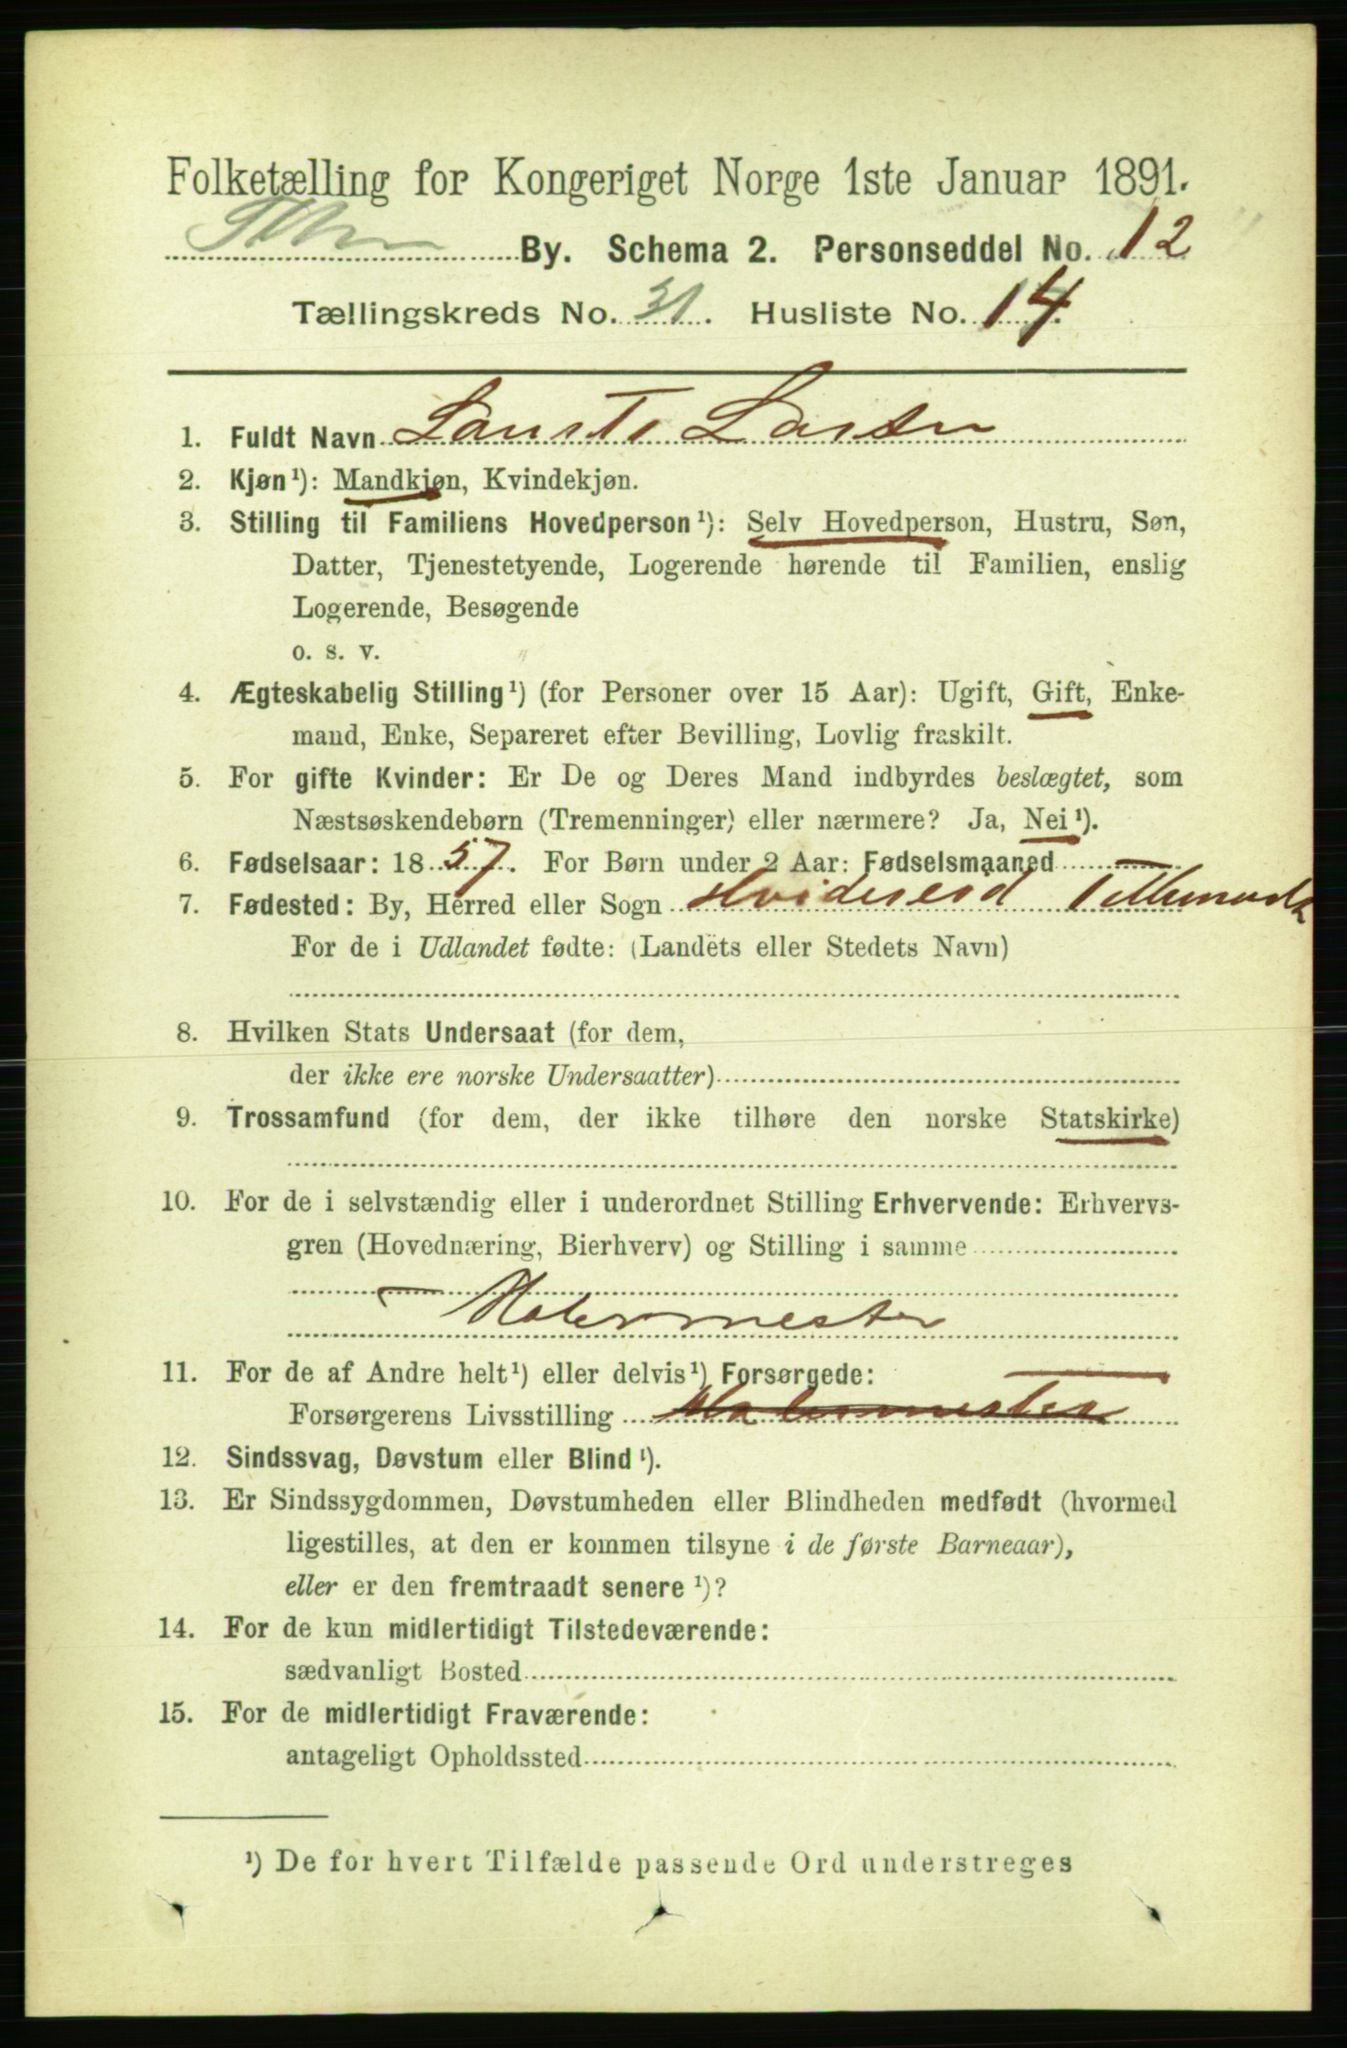 Folketælling for Kongeriget Norge 1ste Januar 1891.
By. Schema 2. Personseddel No. 12
Tællingskreds No. 31. Husliste No. 14.
1. Fuldt Navn Larsen
2. Kjøn ¹): Mandkjøn, Kvindekjøn.
3. Stilling til Familiens Hovedperson ¹): Selv Hovedperson, Hustru, Søn,
Datter, Tjenestetyende, Logerende hørende til Familien, enslig
Logerende, Besøgende
o. s. v.
4. Ægteskabelig Stilling ¹) (for Personer over 15 Aar): Ugift, Gift, Enke-
mand, Enke, Separeret efter Bevilling, Lovlig fraskilt.
5. For gifte Kvinder: Er De og Deres Mand indbyrdes beslægtet, som
Næstsøskendebørn (Tremenninger) eller nærmere? Ja, Nei ¹).
6. Fødselsaar: 1857. For Børn under 2 Aar: Fødselsmaaned
7. Fødested: By, Herred eller Sogn Hvideseid Tellemarken
For de i Udlandet fødte: (Landets eller Stedets Navn)
8. Hvilken Stats Undersaat (for dem,
der ikke ere norske Undersaatter)
9. Trossamfund (for dem, der ikke tilhøre den norske Statskirke)
10. For de i selvstændig eller i underordnet Stilling Erhvervende: Erhvervs-
gren (Hovednæring, Bierhverv) og Stilling i samme
Malermester
11. For de af Andre helt ¹) eller delvis ¹) Forsørgede:
Forsørgerens Livsstilling Malermester
12. Sindssvag, Døvstum eller Blind ¹).
13. Er Sindssygdommen, Døvstumheden eller Blindheden medfødt (hvormed
ligestilles, at den er kommen tilsyne i de første Barneaar),
eller er den fremtraadt senere ¹)?
14. For de kun midlertidigt Tilstedeværende:
sædvanligt Bosted
15. For de midlertidigt Fraværende:
antageligt Opholdssted
¹) De for hvert Tilfælde passende Ord understreges